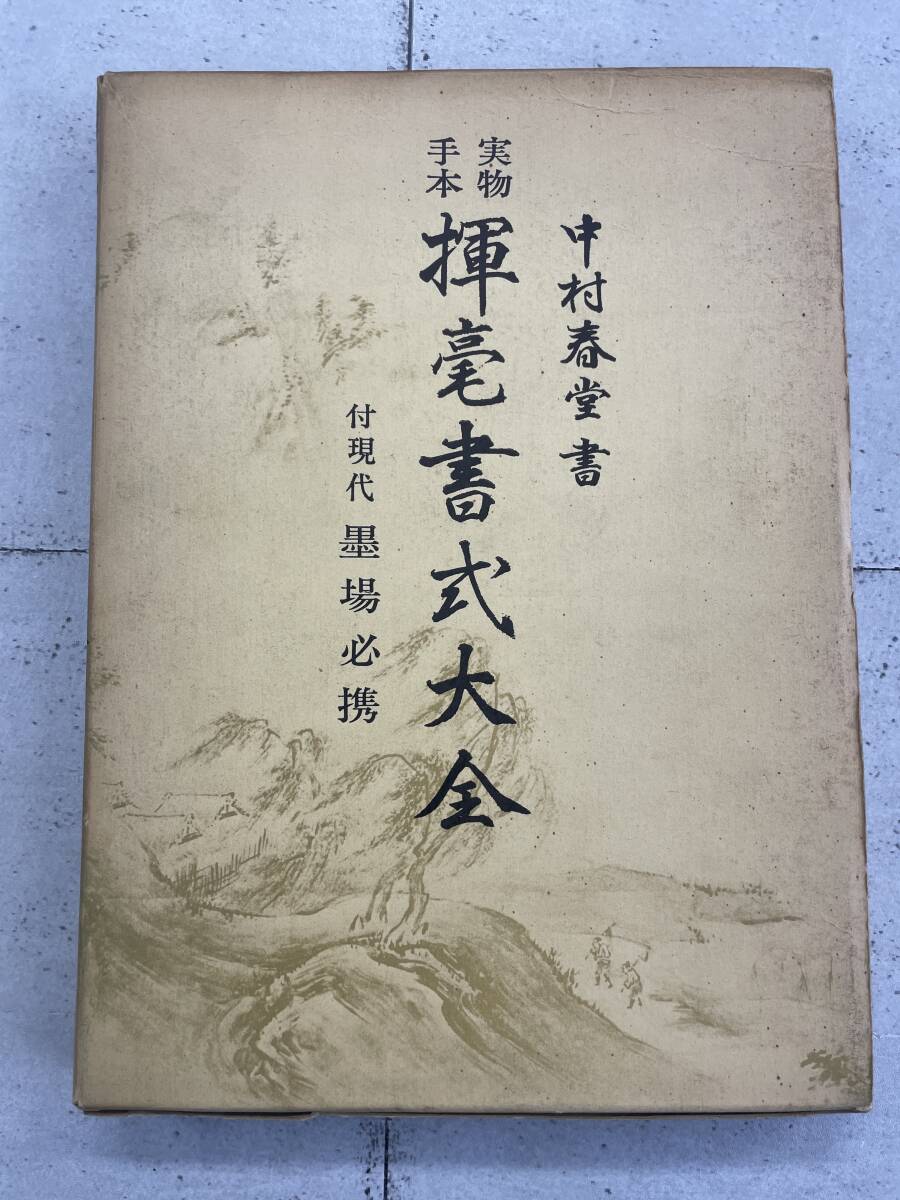 中村春堂書
実物
手本
揮毫書式大全
付現代 墨場必携